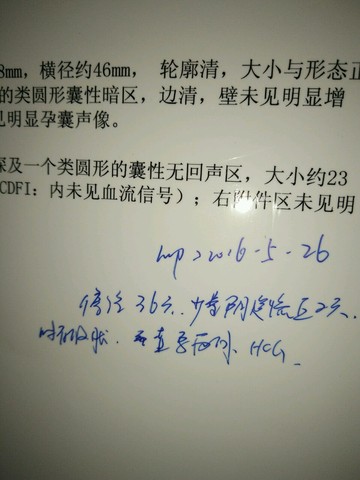 8mm，横径约46mm， 轮廓清，大小与形态正
的类圆形囊性暗区，边清，壁未见明显增
见明显孕囊声像。
探及一个类圆形的囊性无回声区，大小约23
CDFI：内未见血流信号）；右附件区未见明
lmp 2016-5-26
停经36天，少量阴道流血2天，
HCG